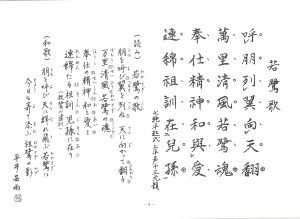 若鷺歌
呼朋列翼向天翻
萬里清風若鷺魂
奉仕精神和與愛
連綿祖訓在兒孫
（読み）若鷺の歌
朋を呼び翼を列ね 天に向かって翻る
万里清風 若鷺の魂
奉仕精神 和と愛
連綿たる祖訓 児孫に在り
（和歌）
朋を呼び 天に群れ飛ぶ 若鷺に
今日も寄り添ふ 祖鷺の影